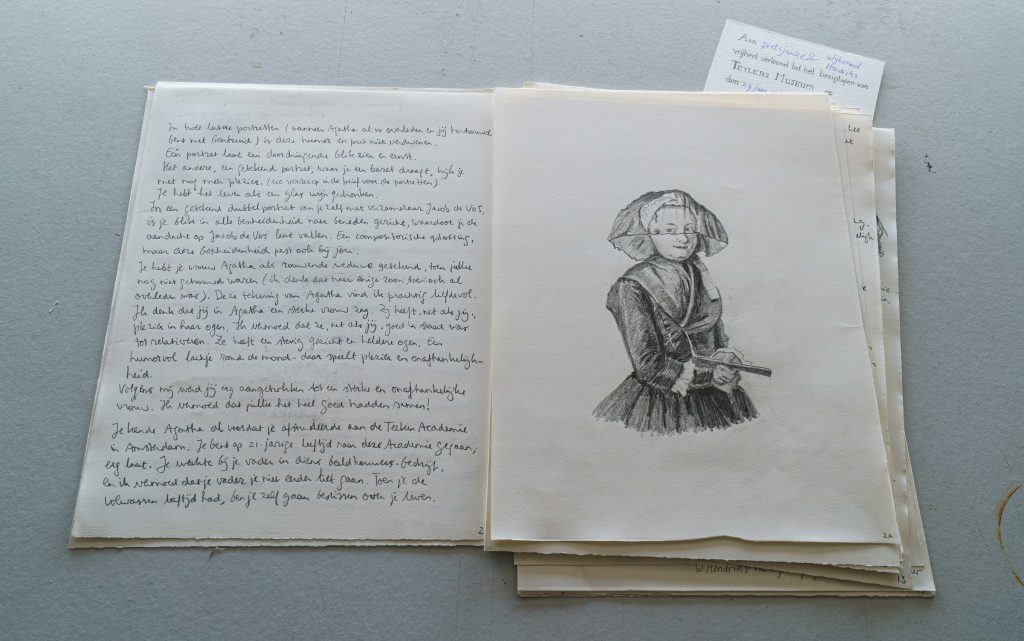 In twee latere portretten (wanneer Agatha al is overleden en jij hertrouwd
bent met Geertruid) is deze humor en pret niet verdwenen.
Eén portret laat een doordringende blik zien en ernst.
Het andere, een getekend portret, waar je een baret draagt, kijk je
met nog meer plezier. (zie verderop in de brief voor de portretten)
Je hebt het leven als een glas wijn gedronken.
In een getekend dubbelportret van jezelf met verzamelaar Jacob de Vos,
is je blik in alle bescheidenheid naar beneden gericht, waardoor je de
aandacht op Jacob de Vos laat vallen. Een compositorische oplossing,
maar deze bescheidenheid past ook bij jou.
Je hebt je vrouw Agatha als rouwende weduwe getekend, toen jullie
nog niet getrouwd waren (ik denk dat haar enige zoon toen ook al
overleden was). Deze tekening van Agatha vind ik prachtig liefdevol.
Ik denk dat jij in Agatha een sterke vrouw zag. Zij heeft, net als jij,
plezier in haar ogen. Ik vermoed dat ze, net als jij, goed in staat was
tot relativeren. Ze heeft een stevig gezicht en heldere ogen. Een
humorvol lachje rond de mond - daar speelt plezier en onafhankelijk-
heid.
Volgens mij werd jij erg aangetrokken tot een sterke en onafhankelijke
vrouw. Ik vermoed dat jullie het heel goed hadden samen!
Je kende Agatha al voordat je afstudeerde aan de Teeken Academie
in Amsterdam. Je bent op 21-jarige leeftijd naar deze Academie gegaan,
erg laat. Je werkte bij je vader in diens beeldhouwers-bedrijf,
en ik vermoed dat je vader je niet eerder liet gaan. Toen je de
volwassen leeftijd had, ben je zelf gaan beslissen over je leven.
2
Aan pietsjanke Wybrand
Hendriks
vrijheid verleend tot het bezigtigen van
TEYLERS MUSEUM op
den 27 juni
het
elijk
2a
W. Hendriks
13